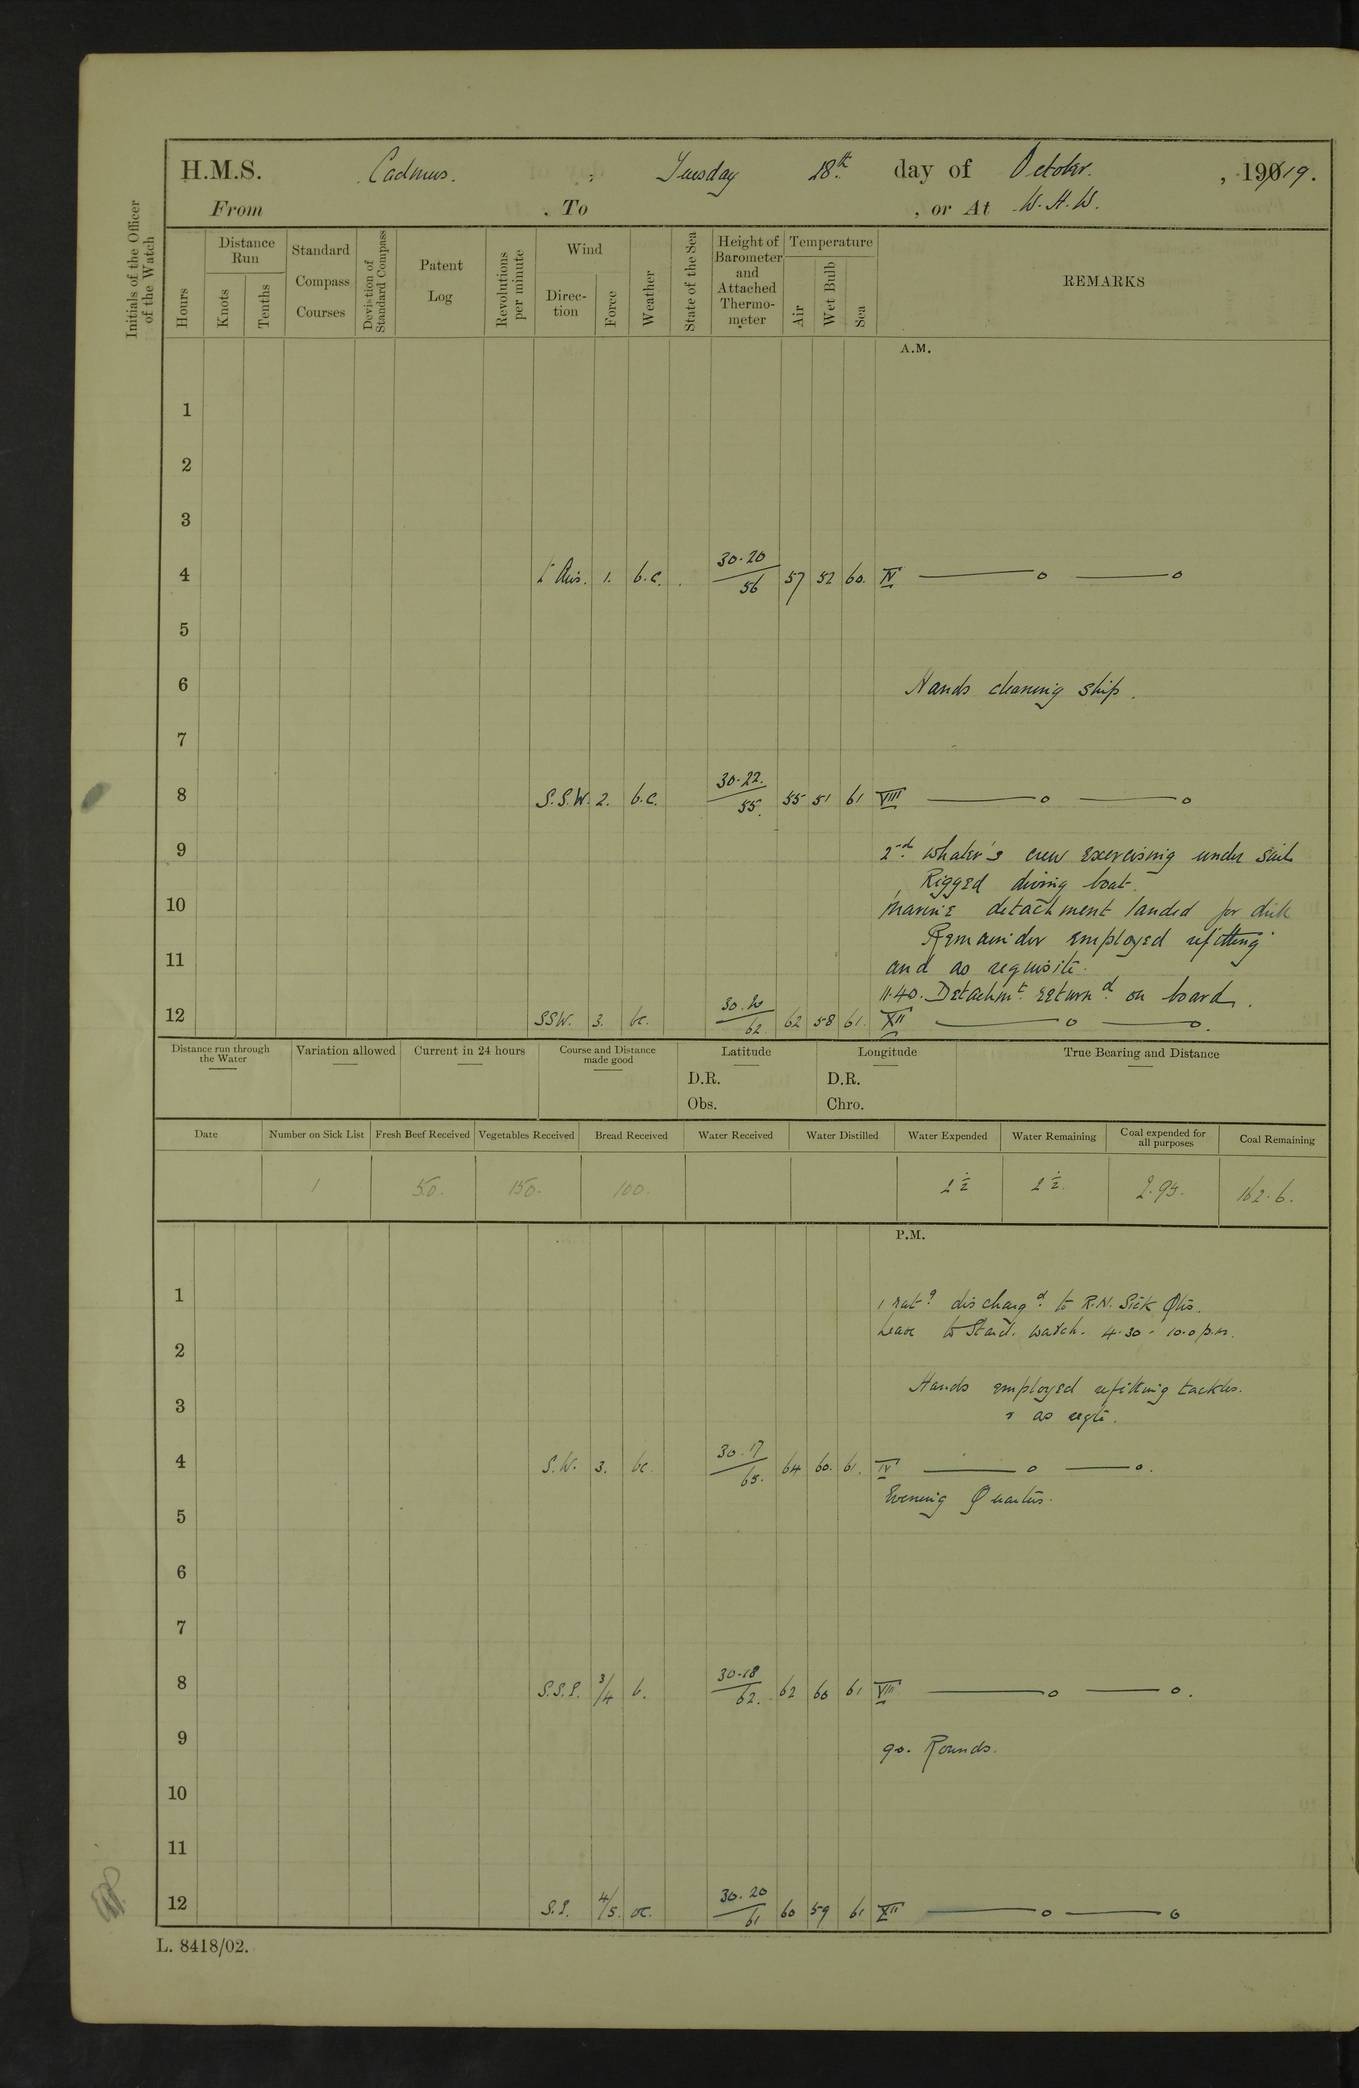 H.M.S. Cadmus. , Tuesday 28th day of October. , 19019.
From . To , or At W. H. W.
Initials of the Officer of the Watch
Hours
Distance Run
Knots
Tenths
Standard Compass Courses
Deviation of Standard Compass
Patent Log
Revolutions per minute
Wind
Direction
Force
Weather
State of the Sea
Height of Barometer and Attached Thermometer
Temperature
Air
Wet Bulb
Sea
REMARKS
A.M.
1
2
3
4 Lt Airs. 1. b.c. 30.20/56 57 52 60. IV
5
6 Hands cleaning ship.
7
8 S.S.W. 2. b.c. 30.22./55. 55 51 61 VIII
9 2nd whaler's crew exercising under sail
Rigged diving boat.
10 Marine detachment landed for drill
Remainder employed refitting
11 and as requisite.
11.40. Detachmt returnd on board.
12 SSW. 3. bc. 30.20/62. 62 58 61. XII
Distance run through the Water
Variation allowed
Current in 24 hours
Course and Distance made good
Latitude
D.R.
Obs.
Longitude
D.R.
Chro.
True Bearing and Distance
Date Number on Sick List Fresh Beef Received Vegetables Received Bread Received Water Received Water Distilled Water Expended Water Remaining Coal expended for all purposes Coal Remaining
1 50. 150. 100. 2.95. 162.6.
P.M.
1 1 ratg dischargd to R.N. Sick Qtrs.
Leave to Starbd. watch. 4.30 - 10.0 p.m.
2
Hands employed refitting tackles.
3 & as reqte.
4 S.W. 3. bc. 30.17/65. 64 60. 61. IV
Evening Quarters.
5
6
7
8 S.S.E. 3/4 b. 30.18/62. 62 60 61 VIII
9 9.0. Rounds.
10
11
12 S.E. 4/5. oc. 30.20/61 60 59 61 XII
L. 8418/02.